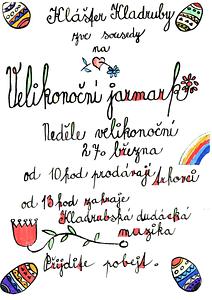 Klášter Kladruby
zve sousedy
na
Velikonoční jarmark
Neděle velikonoční
27. března
od 10 hod prodávají trhovci
od 13 hod zahraje
Kladrubská dudácká
muzika
Přijďte pobejt.